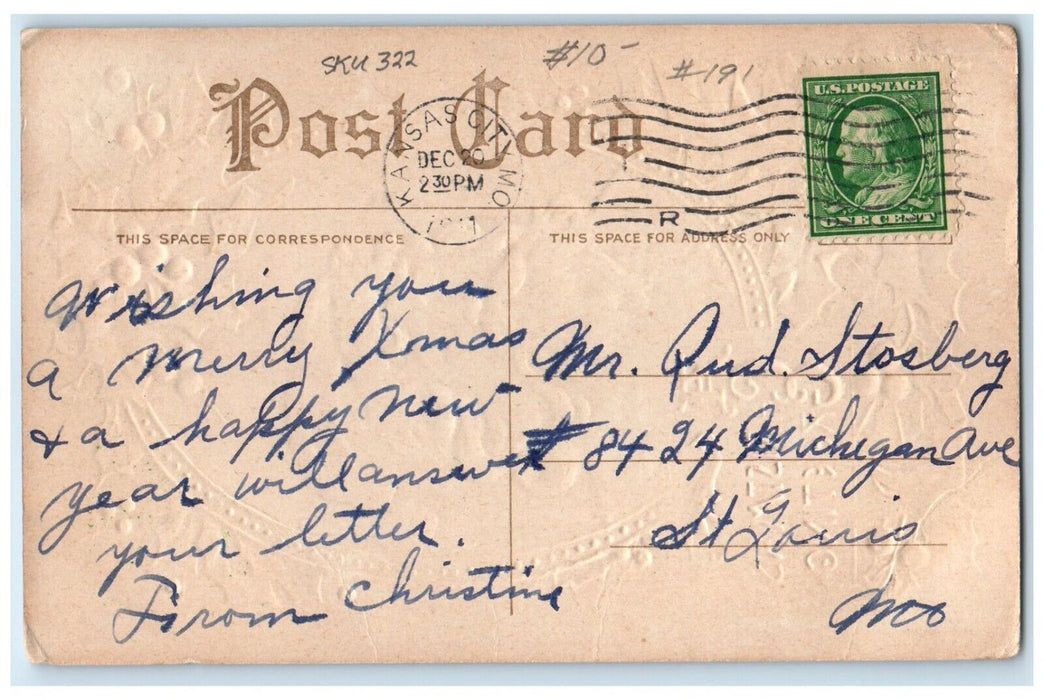 SKU 322
#10-
#191
Post Card
KANSAS CITY, MO
DEC 20
2 30 PM
1911
R
U.S. POSTAGE
ONE CENT
THIS SPACE FOR CORRESPONDENCE
THIS SPACE FOR ADDRESS ONLY
Wishing you
a merry Xmas
& a happy new
year will answer
your letter.
From Christine
Mr. Rud. Stosberg
# 8424 Michigan Ave
St Louis
Mo